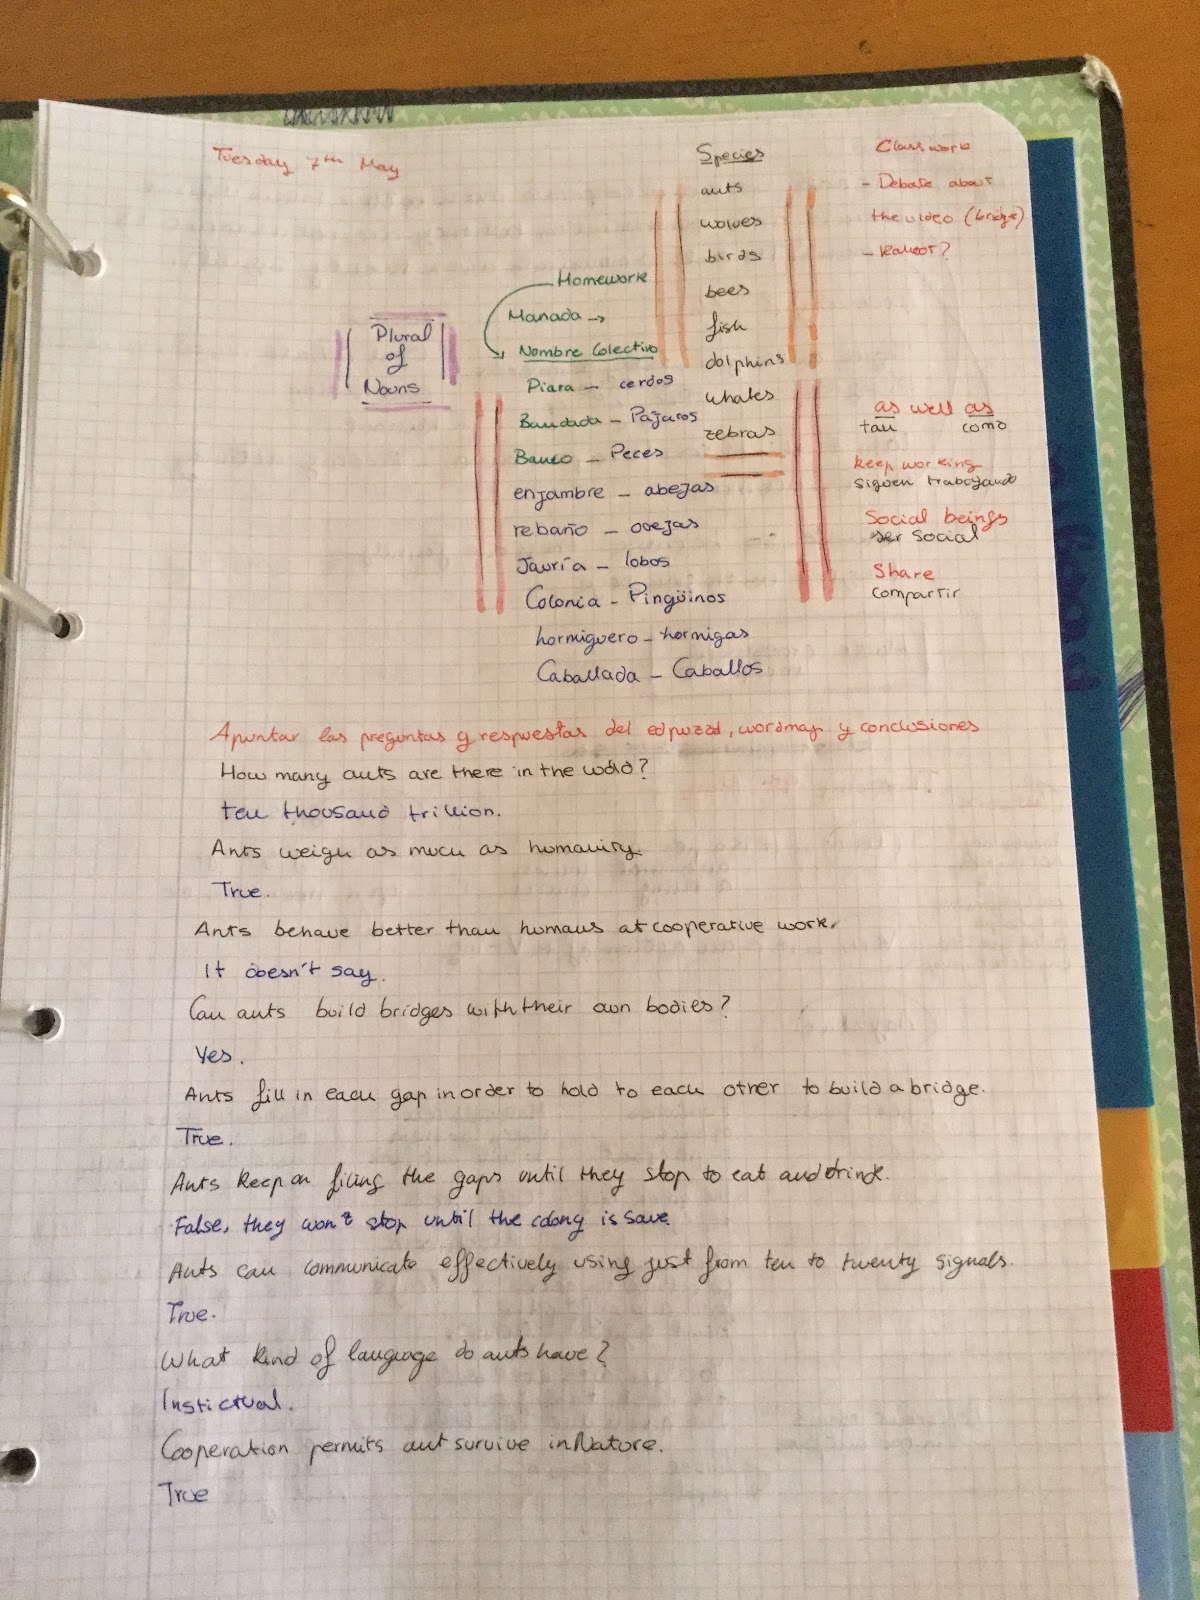 Tuesday 7th May
Plural
of
Nouns
Homework
Manada →
Nombre Colectivo
Piara - cerdos
Bandada - Pájaros
Banco - Peces
enjambre - abejas
rebaño - ovejas
Jauría - lobos
Colonia - Pingüinos
hormiguero - hormigas
Caballada - Caballos
Species
ants
wolves
birds
bees
fish
dolphins
whales
zebras
Classwork
- Debate about
the video (bridge)
- Kahoot?
as well as
tan como
keep working
siguen trabajando
Social beings
ser social
Share
compartir
Apuntar las preguntas y respuestas del edpuzzl, wordmap y conclusiones
How many ants are there in the world?
ten thousand trillion.
Ants weigh as much as humanity
True.
Ants behave better than humans at cooperative work.
It doesn't say.
Can ants build bridges with their own bodies?
Yes.
Ants fill in each gap in order to hold to each other to build a bridge.
True.
Ants keep on filing the gaps until they stop to eat and drink.
False, they won't stop until the colony is save
Ants can communicate effectively using just from ten to twenty signals.
True.
What kind of language do ants have?
Instictual.
Cooperation permits ant survive in Nature.
True